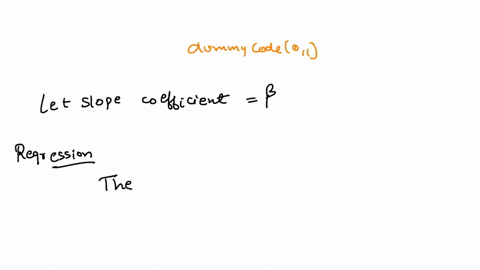 dummy code (0,1)
Let slope coefficient = β
Regression
The